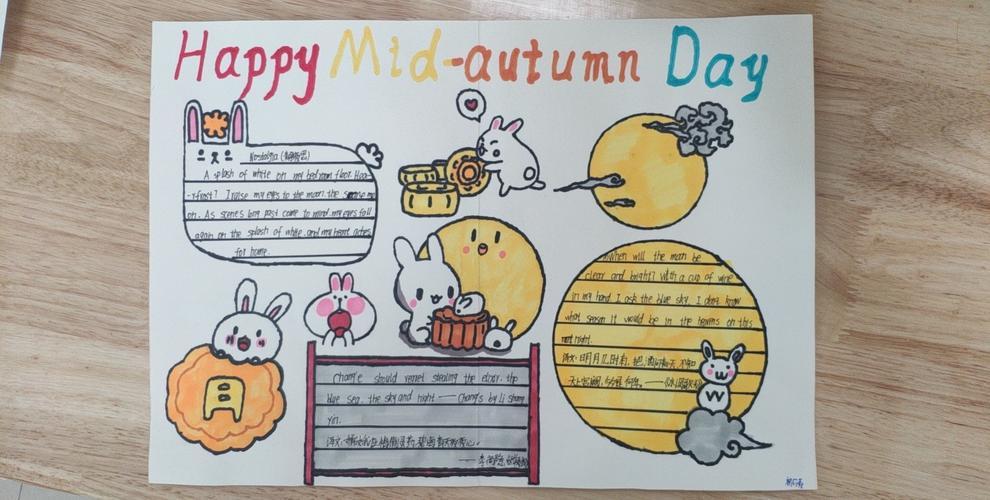 Happy Mid-autumn Day
Nostalgia
A splash of white on my bedroom floor. Hoa-
-rfrost? I raise my eyes to the moon, the
on. As scenes long past come to mind, my eyes fall
again on the splash of white, and my heart aches
for home.
月
Chang'e should regret stealing the elixir, the
blue sea, the sky and night —— Chang'e by Li Shang
Yin.
when will the moon be
clear and bright? With a cup of wine
in my hand. I ask the blue sky. I don't know
what season it would be in the heavens on this
night.
译文:明月几时有,把酒问青天,不知